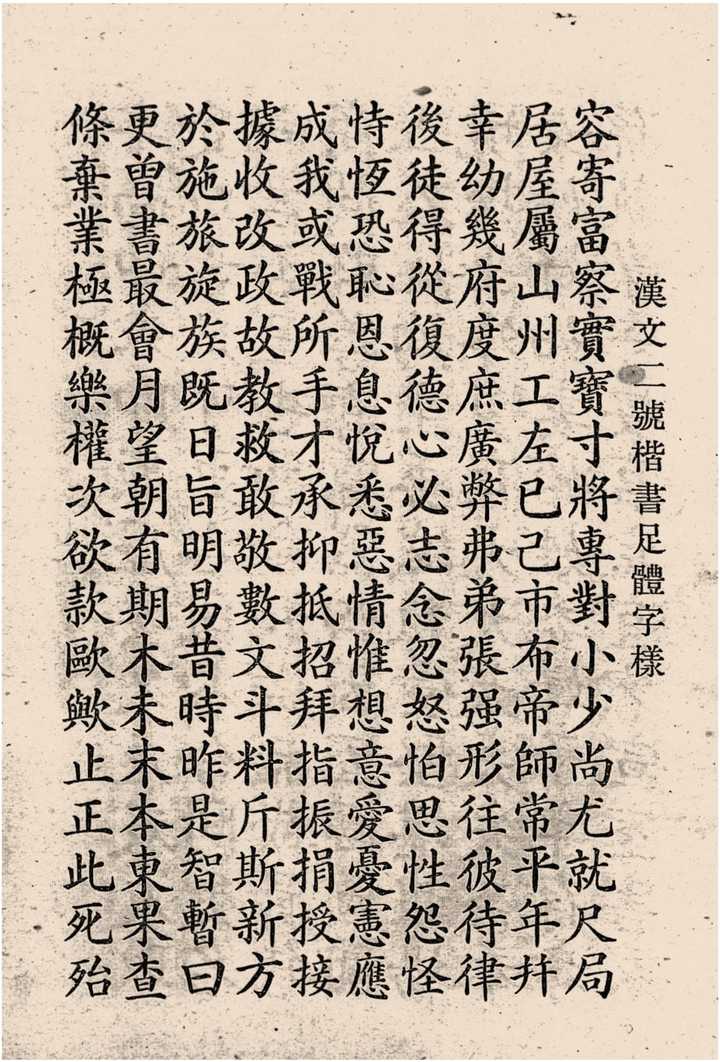 漢文二號楷書足體字樣
容寄富察實寶寸將專對小少尚尤就尺局
居屋屬山州工左巳己市布帝師常平年幷
幸幼幾府度庶廣弊弗弟張强形往彼待律
後徒得從復德心必志念忽怒怕思性怨怪
恃恆恐恥恩息悅悉惡情惟想意愛憂憲應
成我或戰所手才承抑抵招拜指振捐授接
據收改政故教救敢敬數文斗料斤斯新方
於施旅旋族既日旨明易昔時昨是智暫曰
更曾書最會月望朝有期木未末本東果查
條棄業極概樂權次欲款歐歟止正此死殆